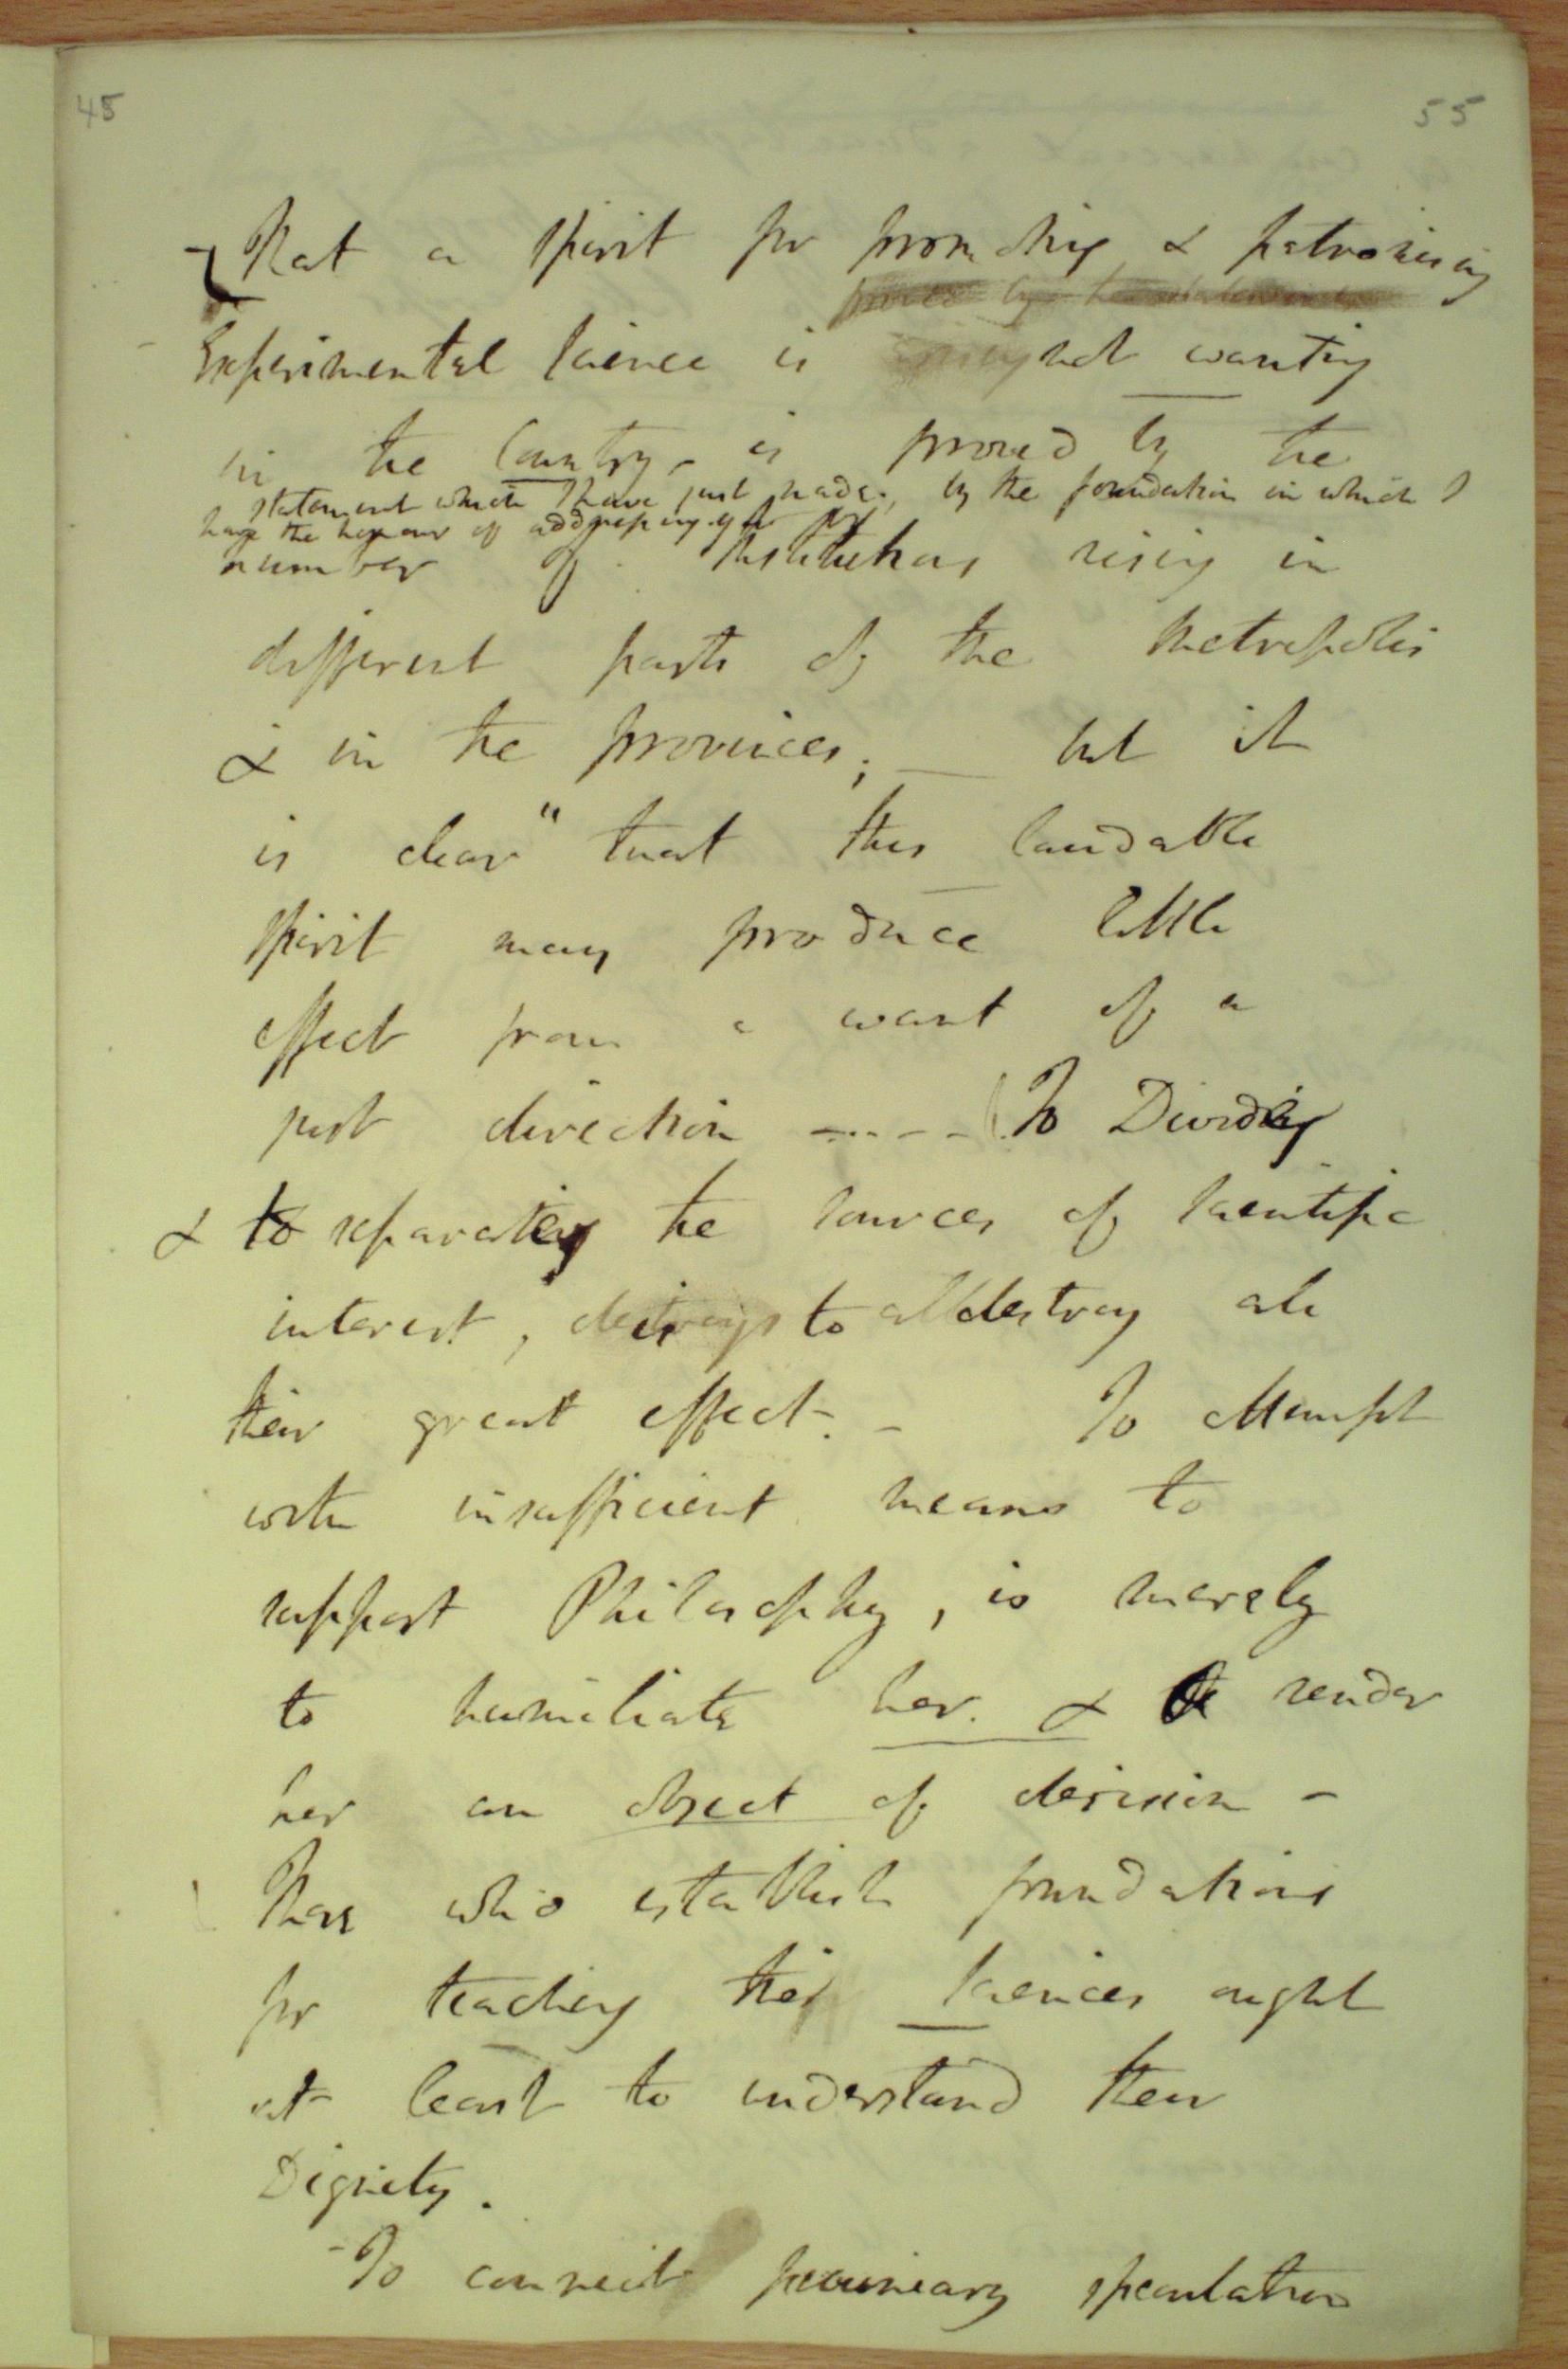 45 55
That a spirit for promoting & patronising
proved by the statement
Experimental Science is not wanting
in the Country, is proved by the
statement which I have just made, by the foundation in which I
have the honour of addressing you
number of Institutions rising in
different parts of the Metropolis
& in the provinces; — but it
is clear" that this laudable
spirit may produce little
effect from a want of a
just direction ----- To Dividing
& to separating the sources of scientific
interest, is to destroy all
their great effect. - To attempt
with insufficient means to
support Philosophy, is merely
to humiliate her. & render
her an object of derision -
Those who establish foundations
for teaching the Sciences ought
at least to understand their
Dignity.
- To connect pecuniary speculation